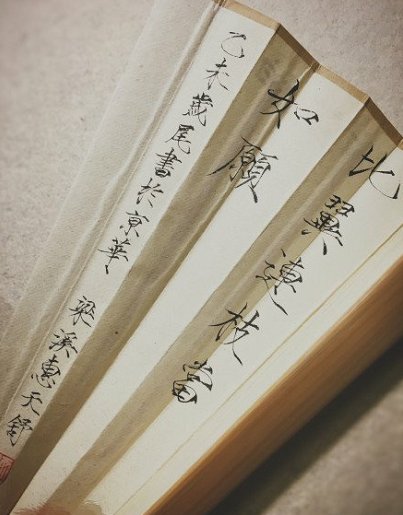 比翼連枝當
如願
乙未歲尾書於京華
梁溪惠天舒